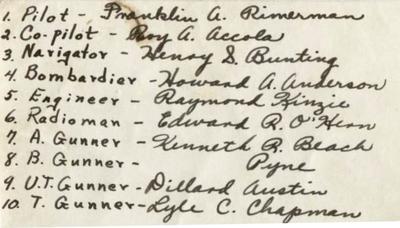 1. Pilot - Franklin A. Rimerman
2. Co-pilot - Roy A. Accola
3. Navigator - Henry S. Bunting
4. Bombardier - Howard A. Anderson
5. Engineer - Raymond Kinzie
6. Radioman - Edward R. O'Hern
7. A. Gunner - Kenneth R. Beach
8. B. Gunner - Pyne
9. U.T. Gunner - Dillard Austin
10. T. Gunner - Lyle C. Chapman